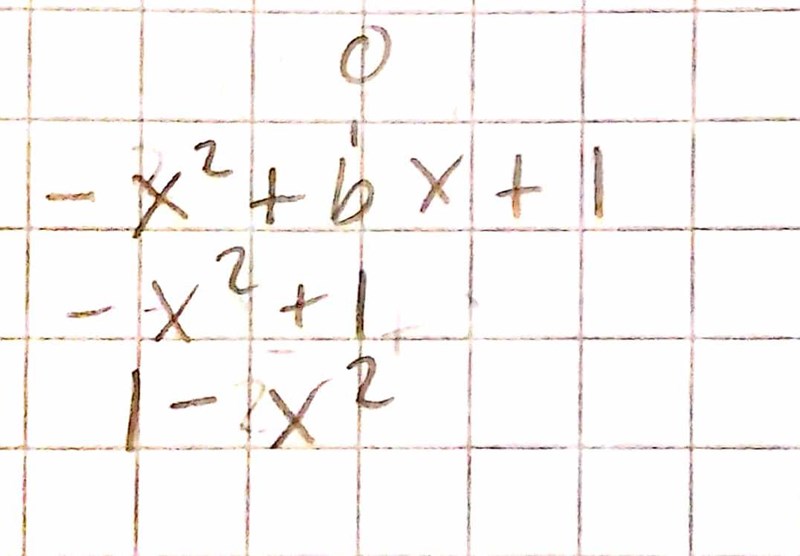 0
- x² + b x + 1
- x² + 1
1 - x²